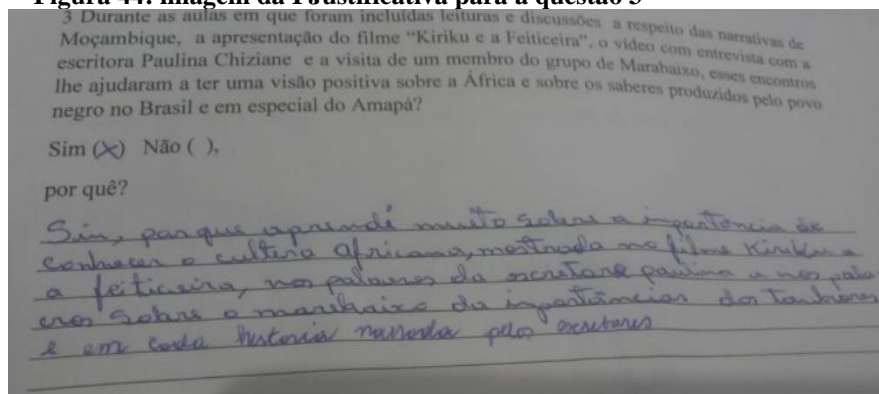 Figura 44: imagem da Justificativa para a questão 3
3 Durante as aulas em que foram incluídas leituras e discussões a respeito das narrativas de
Moçambique, a apresentação do filme “Kiriku e a Feiticeira”, o vídeo com entrevista com a
escritora Paulina Chiziane e a visita de um membro do grupo de Marabaixo, esses encontros
lhe ajudaram a ter uma visão positiva sobre a África e sobre os saberes produzidos pelo povo
negro no Brasil e em especial do Amapá?
Sim (X) Não ( ),
por quê?
Sin, porque aprendi muito sobre a importância de
conhecer a cultura africana, mostrada no filme Kiriku a
a feiticeira, nas palavras da escritora paulina e nas pala
sobre o marabaixo da importâncias dos Tambores
e em cada historia narrada pelos escritores